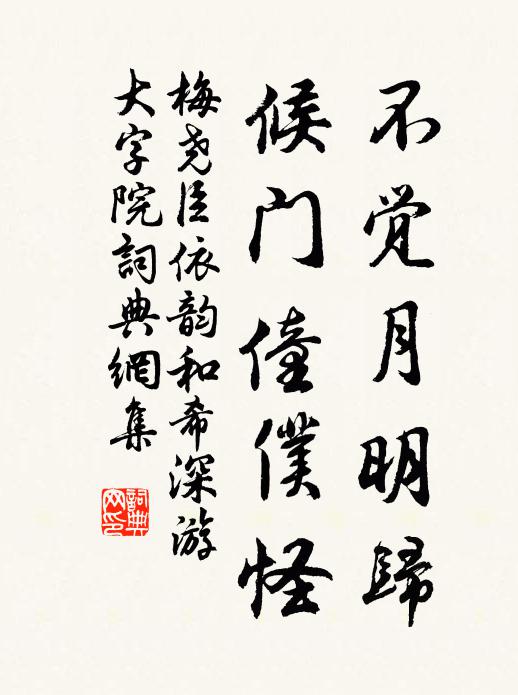 不觉月明歸
候門僮僕怪
梅尧臣依韵和希深游
大字院詞典網集
詞典网印